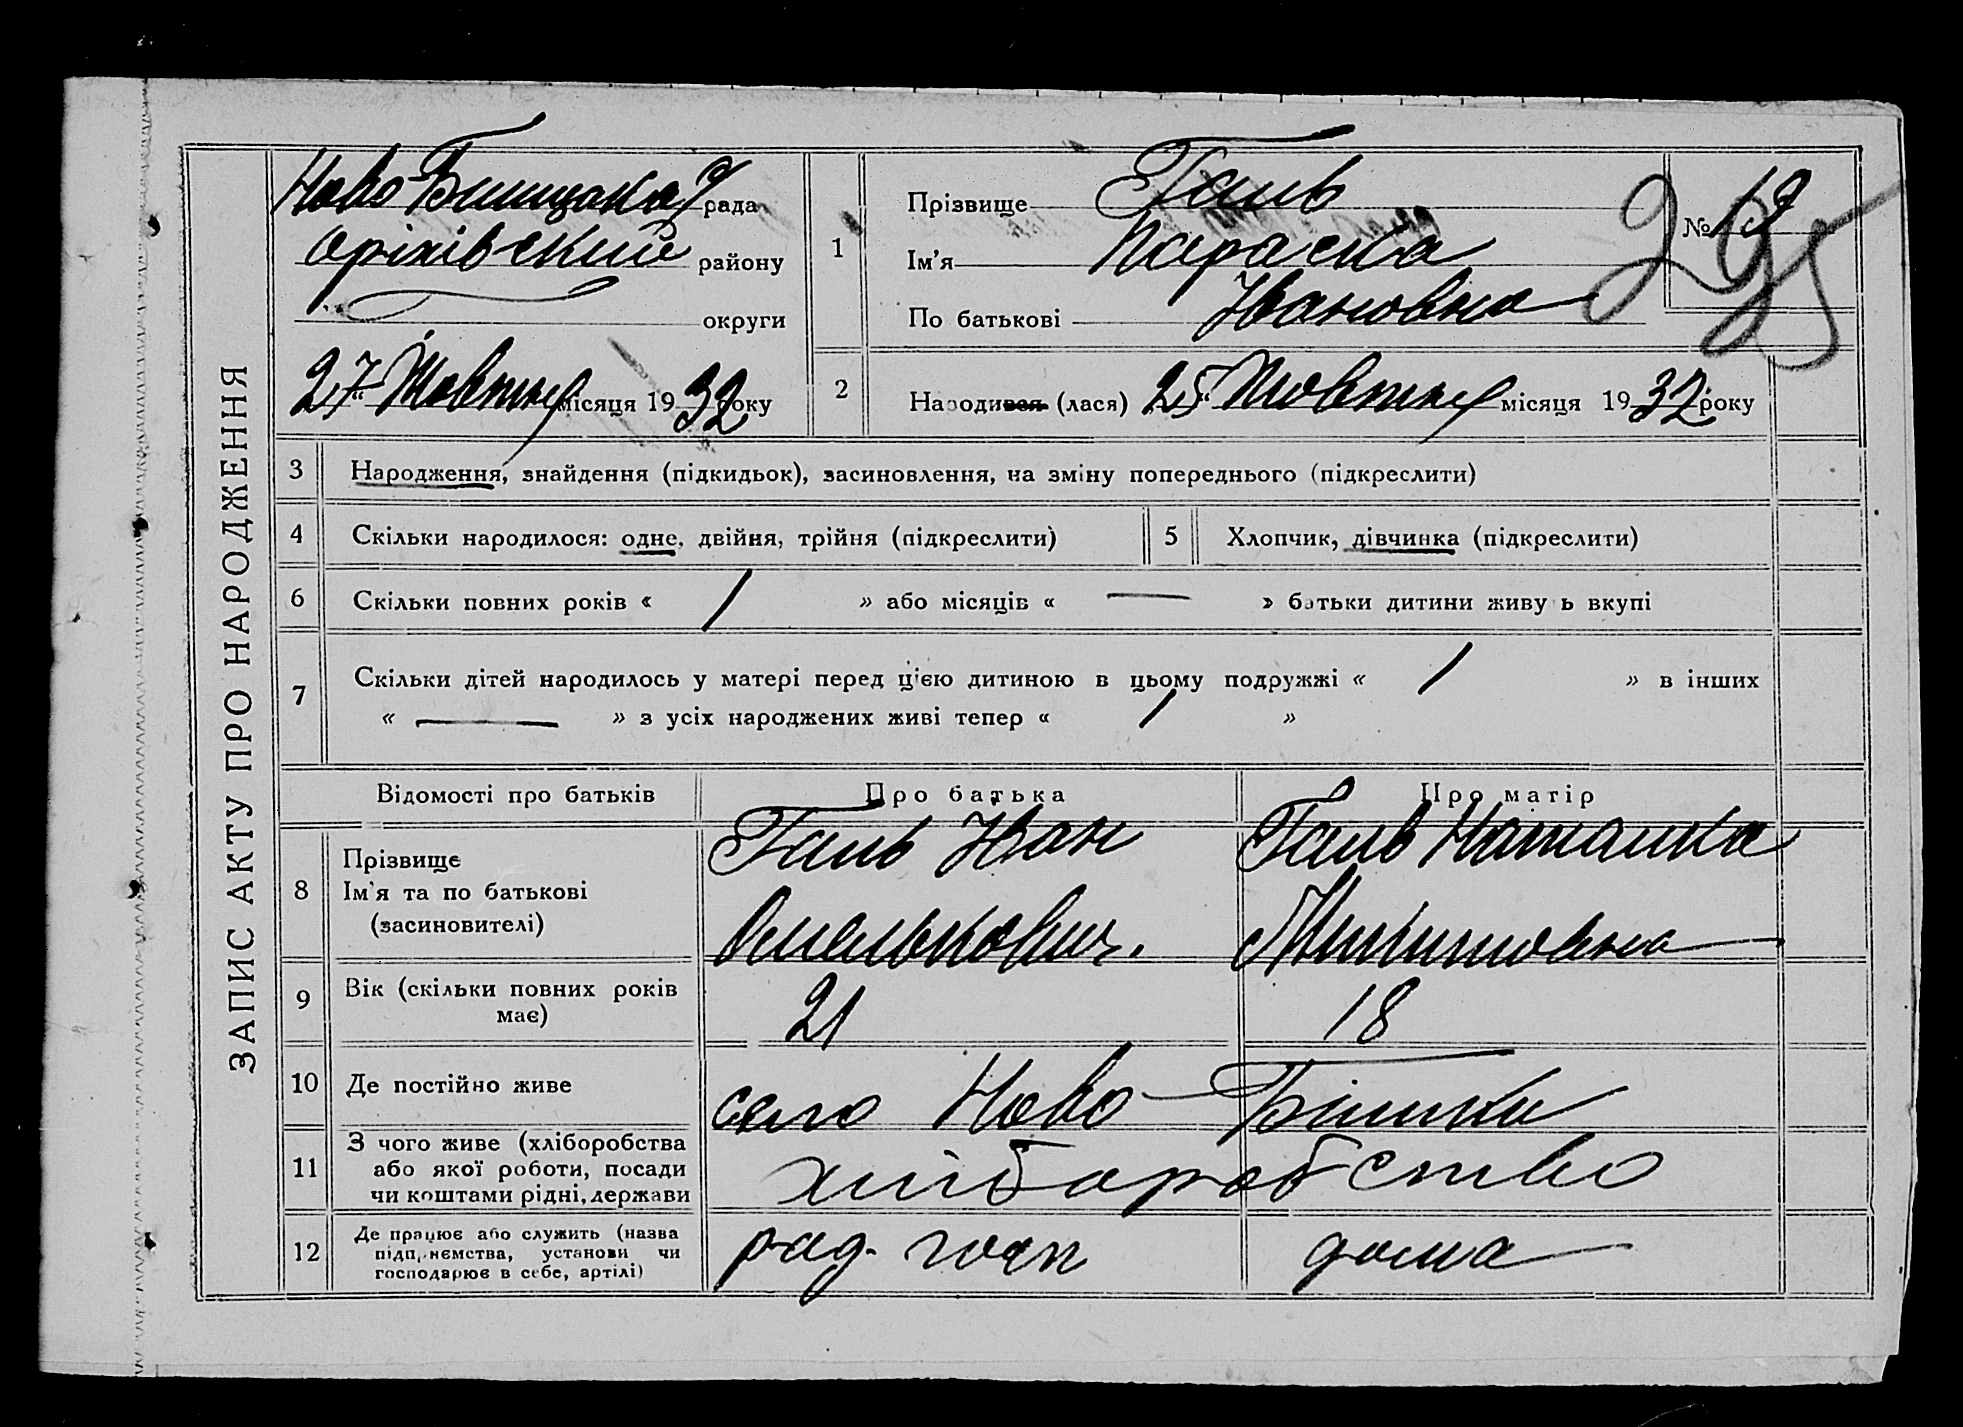 ЗАПИС АКТУ ПРО НАРОДЖЕННЯ
рада
Оріхівський району
округи
27 Жовтня місяця 1932 року
1
Прізвище Галь
Ім'я Параска
По батькові Івановна
№ 19
295
2 Народився (лася) 25 Жовтня місяця 1932 року
3 Народження, знайдення (підкидьок), засиновлення, на зміну попереднього (підкреслити)
4 Скільки народилося: одне, двійня, трійня (підкреслити)
5 Хлопчик, дівчинка (підкреслити)
6 Скільки повних років « 1 » або місяців « — » батьки дитини живуть вкупі
7 Скільки дітей народилось у матері перед цією дитиною в цьому подружжі « 1 » в інших
« — » з усіх народжених живі тепер « 1 »
Відомості про батьків
Про батька
Про матір
8
Прізвище
Ім'я та по батькові
(засиновителі)
Галь Іван
Омелькович.
Галь Наташка
9
Вік (скільки повних років
має)
21
18
10 Де постійно живе
село Ново
11
З чого живе (хліборобства
або якої роботи, посади
чи коштами рідні, держави
хліборобство
12
Де працює або служить (назва
підприємства, установи чи
господарює в себе, артілі)
рад. госп
дома